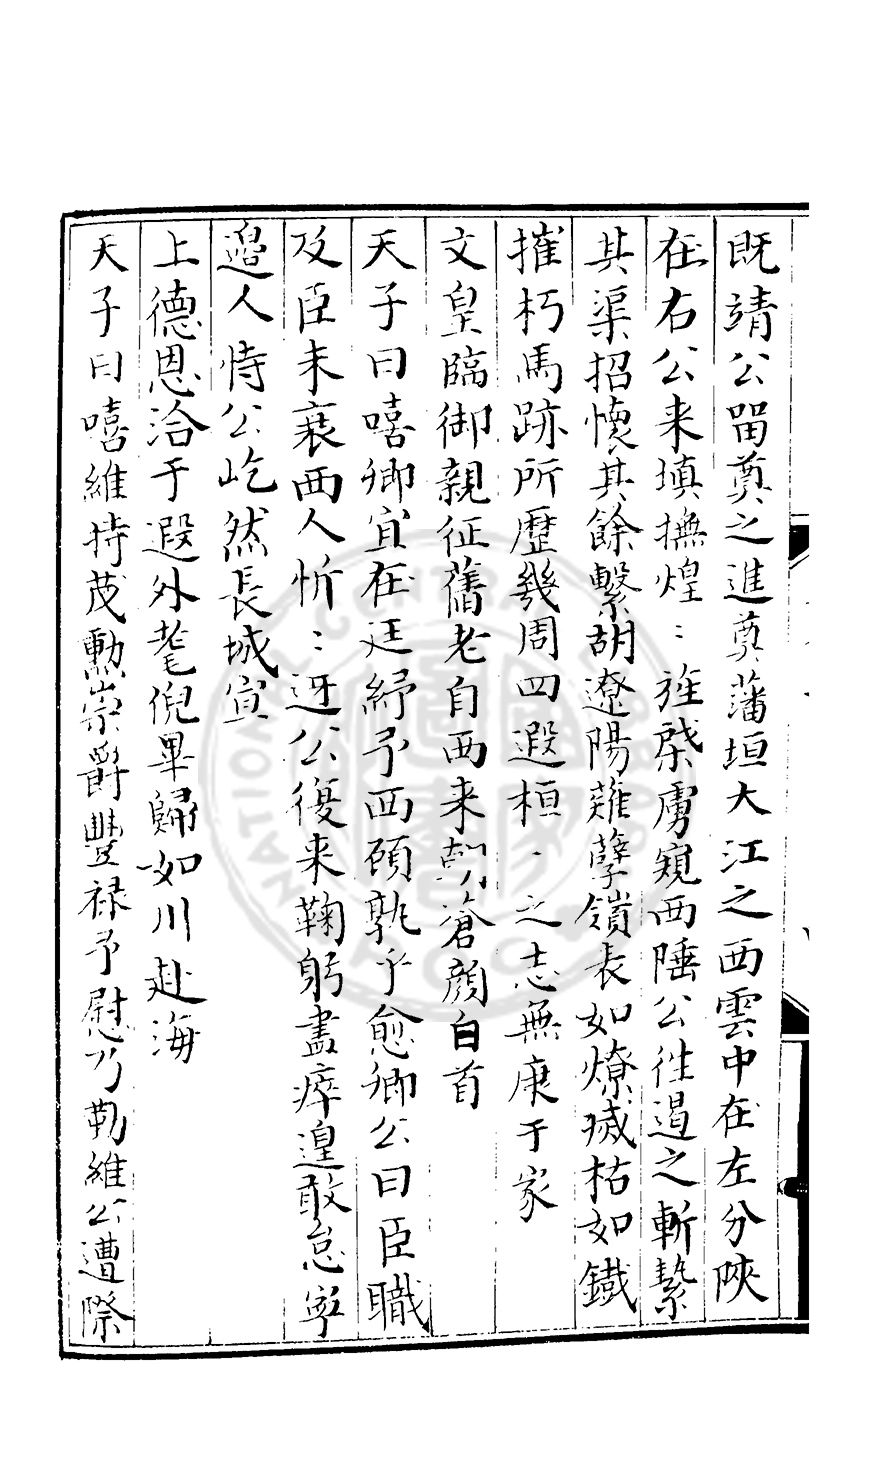 既靖公留奠之進奠藩垣大江之西雲中在左分陝
在右公来填撫煌〻旌棨虜窺西陲公徃遏之斬縶
其渠招懷其餘繫胡遼陽薙孽嶺表如燎㓕枯如鐵
摧朽馬跡所歷幾周四遐桓〻之志無康于家
文皇臨御親征舊老自西来朝滄顔白首
天子曰嘻卿宜在廷紓予西顧孰乎愈卿公曰臣職
及臣未衰西人忻〻迓公復来鞠躬盡瘁遑敢怠寧
邉人恃公屹然長城宣
上德恩洽于遐外耄倪畢歸如川赴海
天子曰嘻維持茂勲崇爵豐禄予慰乃勒維公遭際
NATIONAL CENTRAL LIBRARY